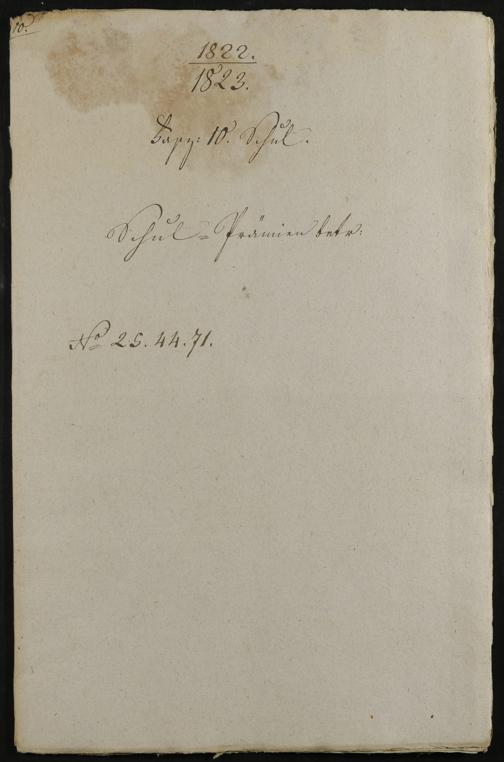 10.
1822.
1823.
10. Schul.
Schul-Prämien betr:
No 25. 44. 71.